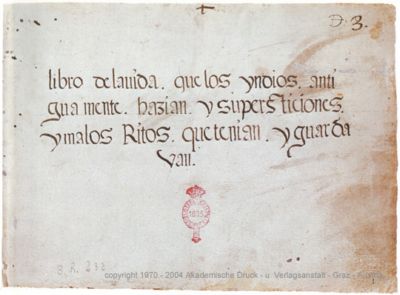 D. 3.
libro delavida. que los yndios. anti
guamente. hazian. y supersticiones.
y malos Ritos. que tenian. y guarda
van.
1835
B. R. 232
copyright 1970 - 2004 Akademische Druck - u. Verlagsanstalt - Graz - Austria